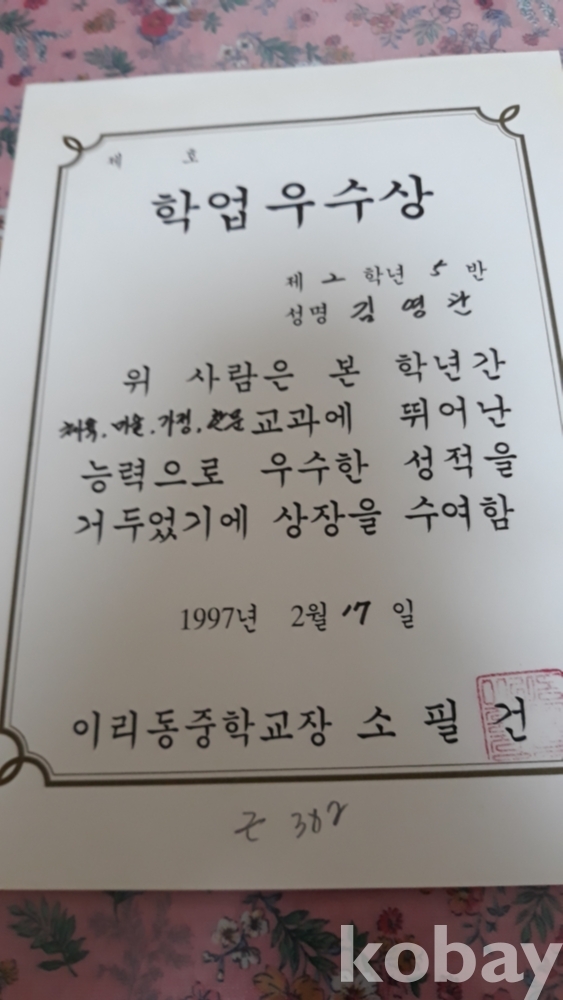 제 호
학업우수상
제 2 학년 5 반
성명 김 영 관
위 사람은 본 학년간
체육. 미술. 가정. 교과에 뛰어난
능력으로 우수한 성적을
거두었기에 상장을 수여함
1997년 2월 17 일
이리동중학교장 소 필 건
382
kobay